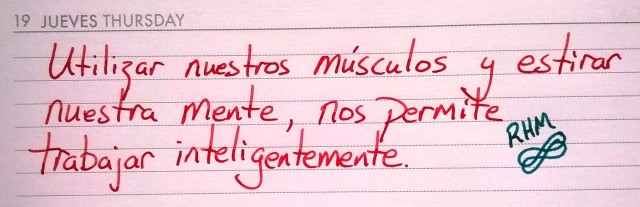 19 JUEVES THURSDAY
Utilizar nuestros músculos y estirar
nuestra mente, nos permite
trabajar inteligentemente.
RHM